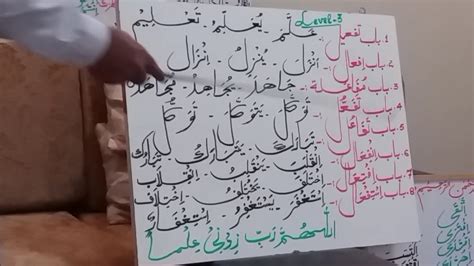 Level-3
1. باب تفعيل :- عَلَّمَ . يُعَلِّمُ . تَعْلِيم
2. باب إفعال :- أَنْزَلَ . يُنْزِلُ . إِنْزَال
3. باب مُفَاعَلة :- جَاهَدَ . يُجَاهِدُ . مُجَاهَدَة
4. باب تَفَعُّل :- تَوَكَّلَ . يَتَوَكَّلُ . تَوَكُّل
5. باب تَفَاعُل :- تَبَارَكَ . يَتَبَارَكُ . تَبَارُك
6. باب اِنْفِعَال :- اِنْقَلَبَ . يَنْقَلِبُ . اِنْقِلَاب
7. باب اِفْتِعَال :- اِخْتَلَفَ . يَخْتَلِفُ . اِخْتِلَاف
8. باب اِسْتِفْعَال :- اِسْتَغْفَرَ . يَسْتَغْفِرُ . اِسْتِغْفَار
اَللّٰهُمَّ رَبِّ زِدْنِي عِلْمًا